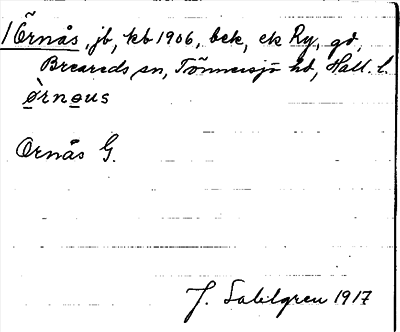 1 Örnås, jb, kb 1906, bek, ek Ry, gd,
Breareds sn, Tönnersjö hd, Hall. l.
ø̀rnøus
Ornås G.
J. Sahlgren 1917